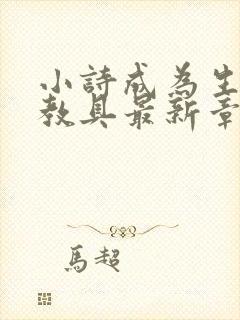 小詩成為生
教具最新章
馬超